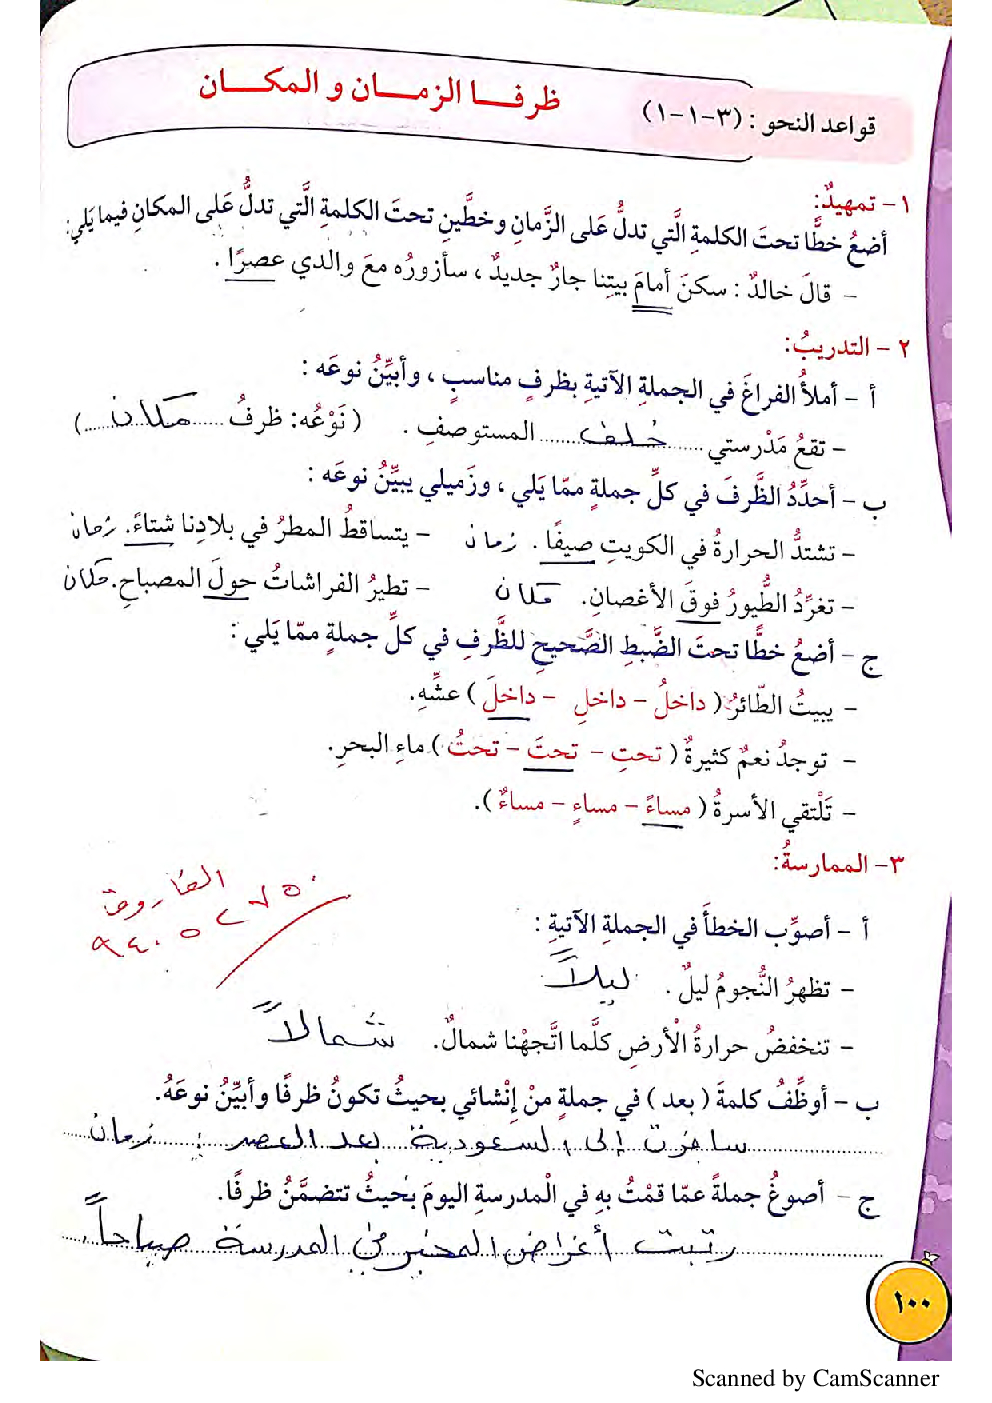 ظرفا الزمان و المكان
قواعد النحو : (٣-١-١)
١- تمهيدٌ:
أضعُ خطًّا تحتَ الكلمةِ الَّتي تدلُّ على الزَّمانِ وخطَّينِ تحتَ الكلمةِ الَّتي تدلُّ عَلى المكانِ فيما يَلي:
- قالَ خالدٌ : سكنَ أمامَ بيتِنا جارٌ جديدٌ ، سأزورُه معَ والدي عصرًا .
٢ - التدريبُ:
أ - أملأُ الفراغَ في الجملةِ الآتيةِ بظرفٍ مناسبٍ ، وأبيِّنُ نوعَه :
- تقعُ مَدْرستي ...... خلف ...... المستوصفِ . (نَوْعُه: ظرفُ ...... مكان ......)
ب - أحدِّدُ الظَّرفَ في كلِّ جملةٍ ممّا يَلي ، وزَميلي يبيِّنُ نوعَه :
- تشتدُّ الحرارةُ في الكويتِ صيفًا . زمان - يتساقطُ المطرُ في بلادِنا شتاءً. زمان
- تغرِّدُ الطُّيورُ فوقَ الأغصانِ. مكان - تطيرُ الفراشاتُ حولَ المصباحِ. مكان
ج - أضعُ خطًّا تحتَ الضَّبطِ الصَّحيحِ للظَّرفِ في كلِّ جملةٍ ممّا يَلي :
- يبيتُ الطّائرُ ( داخلُ - داخلِ - داخلَ ) عشِّهِ.
- توجدُ نعمٌ كثيرةٌ ( تحتِ - تحتَ - تحتُ ) ماءِ البحرِ.
- تَلْتقي الأسرةُ ( مساءً - مساءٍ - مساءٌ ).
٣- الممارسةُ:
الفاروق
٩٤٠٥٢٧٥٠
أ - أصوِّب الخطأَ في الجملةِ الآتيةِ :
- تظهرُ النُّجومُ ليلٌ . ليلاً
- تنخفضُ حرارةُ الْأرضِ كلَّما اتَّجهْنا شمالٌ. شمالاً
ب - أوظِّفُ كلمةَ ( بعد ) في جملةٍ منْ إنْشائي بحيثُ تكونُ ظرفًا وأبيِّنُ نوعَهُ.
سافرت إلى السعودية بعد العصر : زمان
ج - أصوغُ جملةً عمّا قمْتُ بهِ في الْمدرسةِ اليومَ بحيثُ تتضمَّنُ ظرفًا.
رتبت أغراض المختبر في المدرسة صباحاً.
١٠٠
Scanned by CamScanner